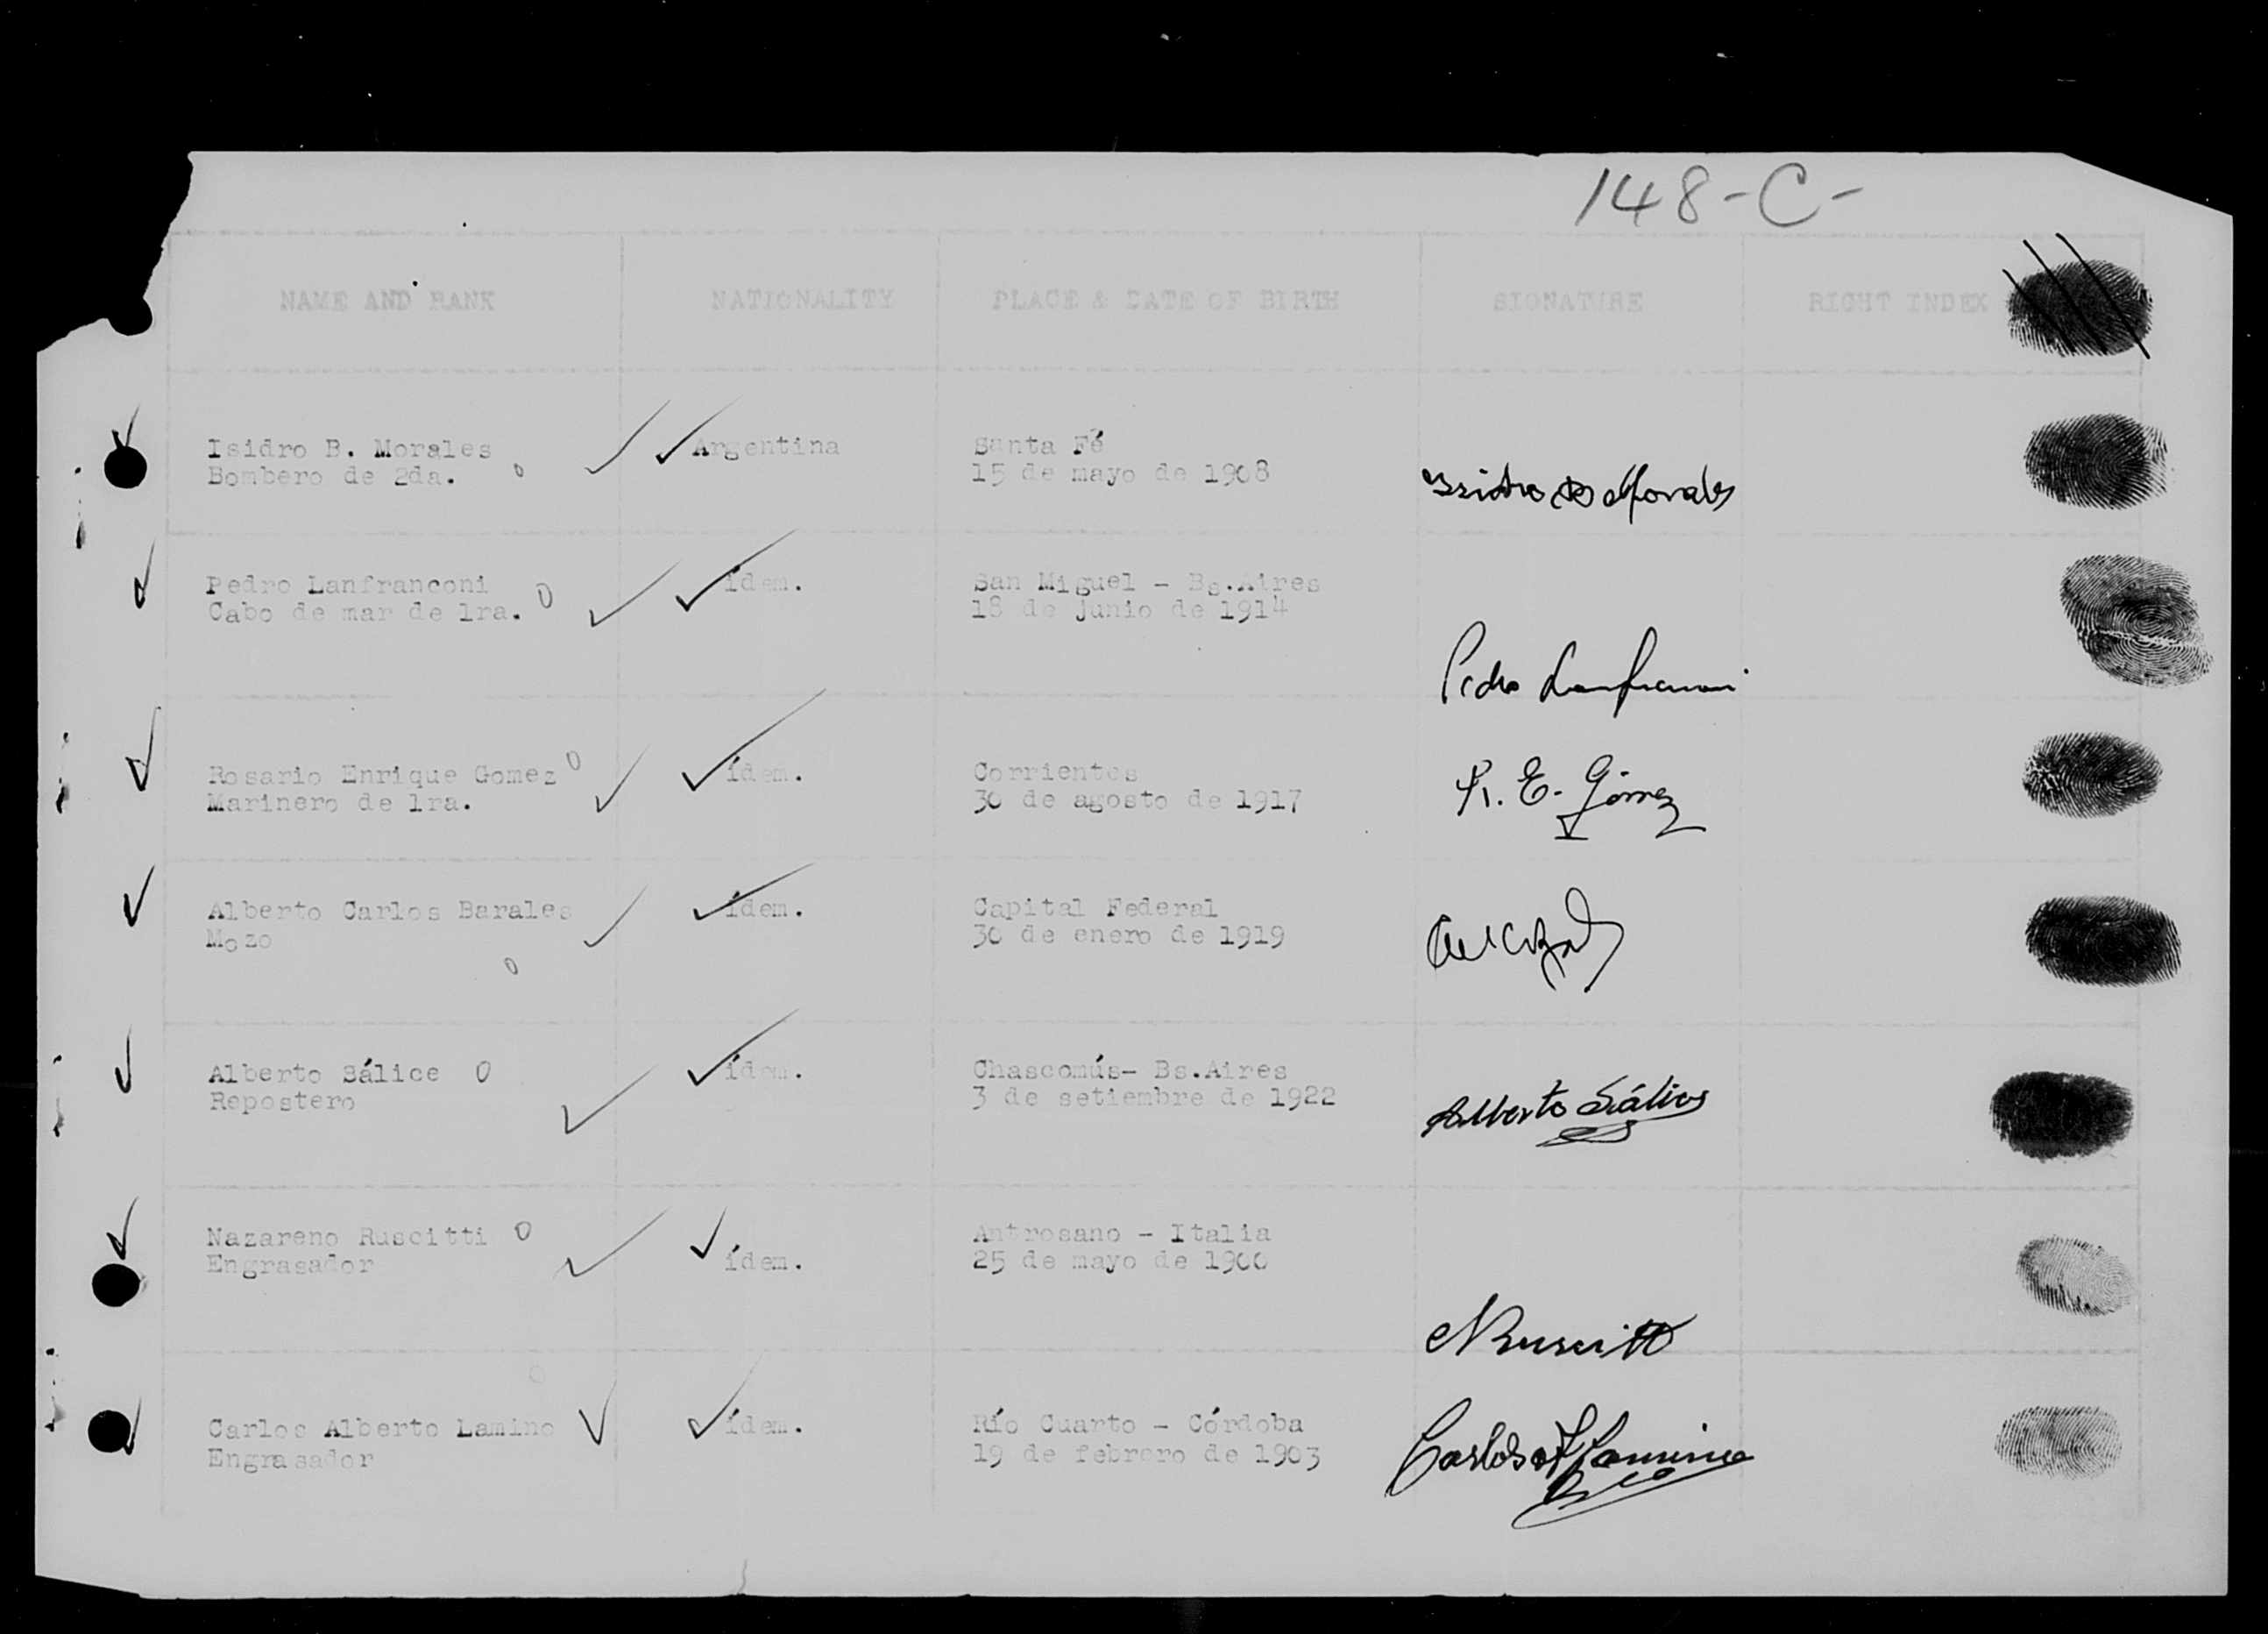 148-C-
NAME AND RANK NATIONALITY PLACE & DATE OF BIRTH SIGNATURE RIGHT INDEX
Isidro B. Morales Argentina Santa Fé
Bombero de 2da. 15 de mayo de 1908
Isidro B Morales
Pedro Lanfranconi ídem. San Miguel - Bs.Aires
Cabo de mar de 1ra. 18 de junio de 1914
Pedro Lanfranconi
Rosario Enrique Gomez ídem. Corrientes
Marinero de 1ra. 30 de agosto de 1917
R. E. Gómez
Alberto Carlos Barales ídem. Capital Federal
Mozo 30 de enero de 1919
Alberto Sálice ídem. Chascomús- Bs.Aires
Repostero 3 de setiembre de 1922
Alberto Sálice
Nazareno Ruscitti ídem. Antrosano - Italia
Engrasador 25 de mayo de 1900
NRuscitti
Carlos Alberto Lamino ídem. Río Cuarto - Córdoba
Engrasador 19 de febrero de 1903
Carlos A Lamino